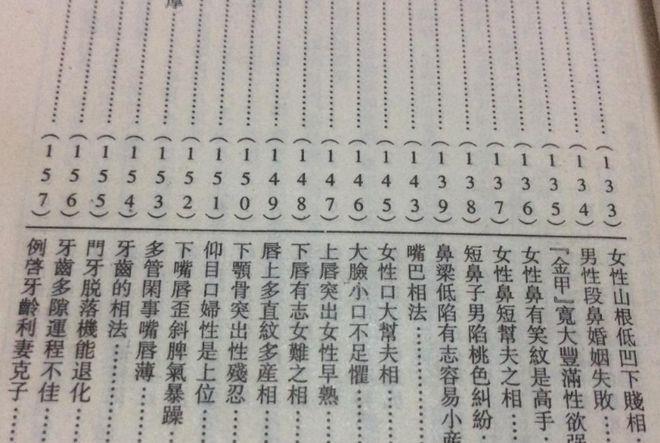 (133)
(134)
(135)
(136)
(137)
(138)
(139)
(143)
(145)
(146)
(147)
(148)
(149)
(150)
(151)
(152)
(153)
(154)
(155)
(156)
(157)
女性山根低凹下賤相
男性段鼻婚姻失敗
『金甲』寬大豐滿性欲
女性鼻有笑紋是高手
女性鼻短幫夫之相
短鼻子男陷桃色糾紛
鼻梁低陷有志容易小產
嘴巴相法
女性口大幫夫相
大臉小口不足懼
上唇突出女性早熟
下唇有志女難之相
唇上多直紋多産相
下顎骨突出性殘忍
仰目口婦性是上位
下嘴唇歪斜脾氣暴躁
多管閑事嘴唇薄
牙齒的相法
門牙脱落機能退化
牙齒多隙運程不佳
例啓牙齡利妻克子